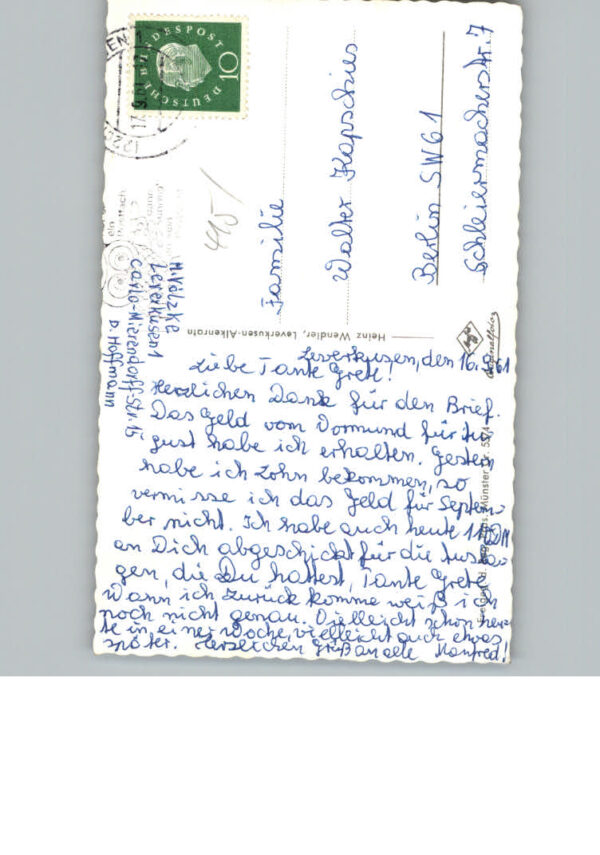 Leverkusen, den 16.9.61
Liebe Tante Grete!
Herzlichen Dank für den Brief.
Das Geld vom Vormund für Au-
gust habe ich erhalten. Gestern
habe ich Lohn bekommen, so
vermisse ich das Geld für Septem-
ber nicht. Ich habe auch heute DM
an Dich abgeschickt für die Ausla-
gen, die Du hattest, Tante Grete.
Wann ich zurück komme weiß ich
noch nicht genau. Vielleicht schon heu-
te in einer Woche, vielleicht auch etwas
später. Herzlichen Gruß an alle Manfred!
M. Välzke
Leverkusen 1
Carlo-Mierendorff-Str. 15
b. Hoffmann
Familie
Walter Kapschies
Berlin SW 61
Schleiermacherstr. 7
DEUTSCHE BUNDESPOST
10
Heinz Wendler, Leverkusen-Alkenrath
Münster